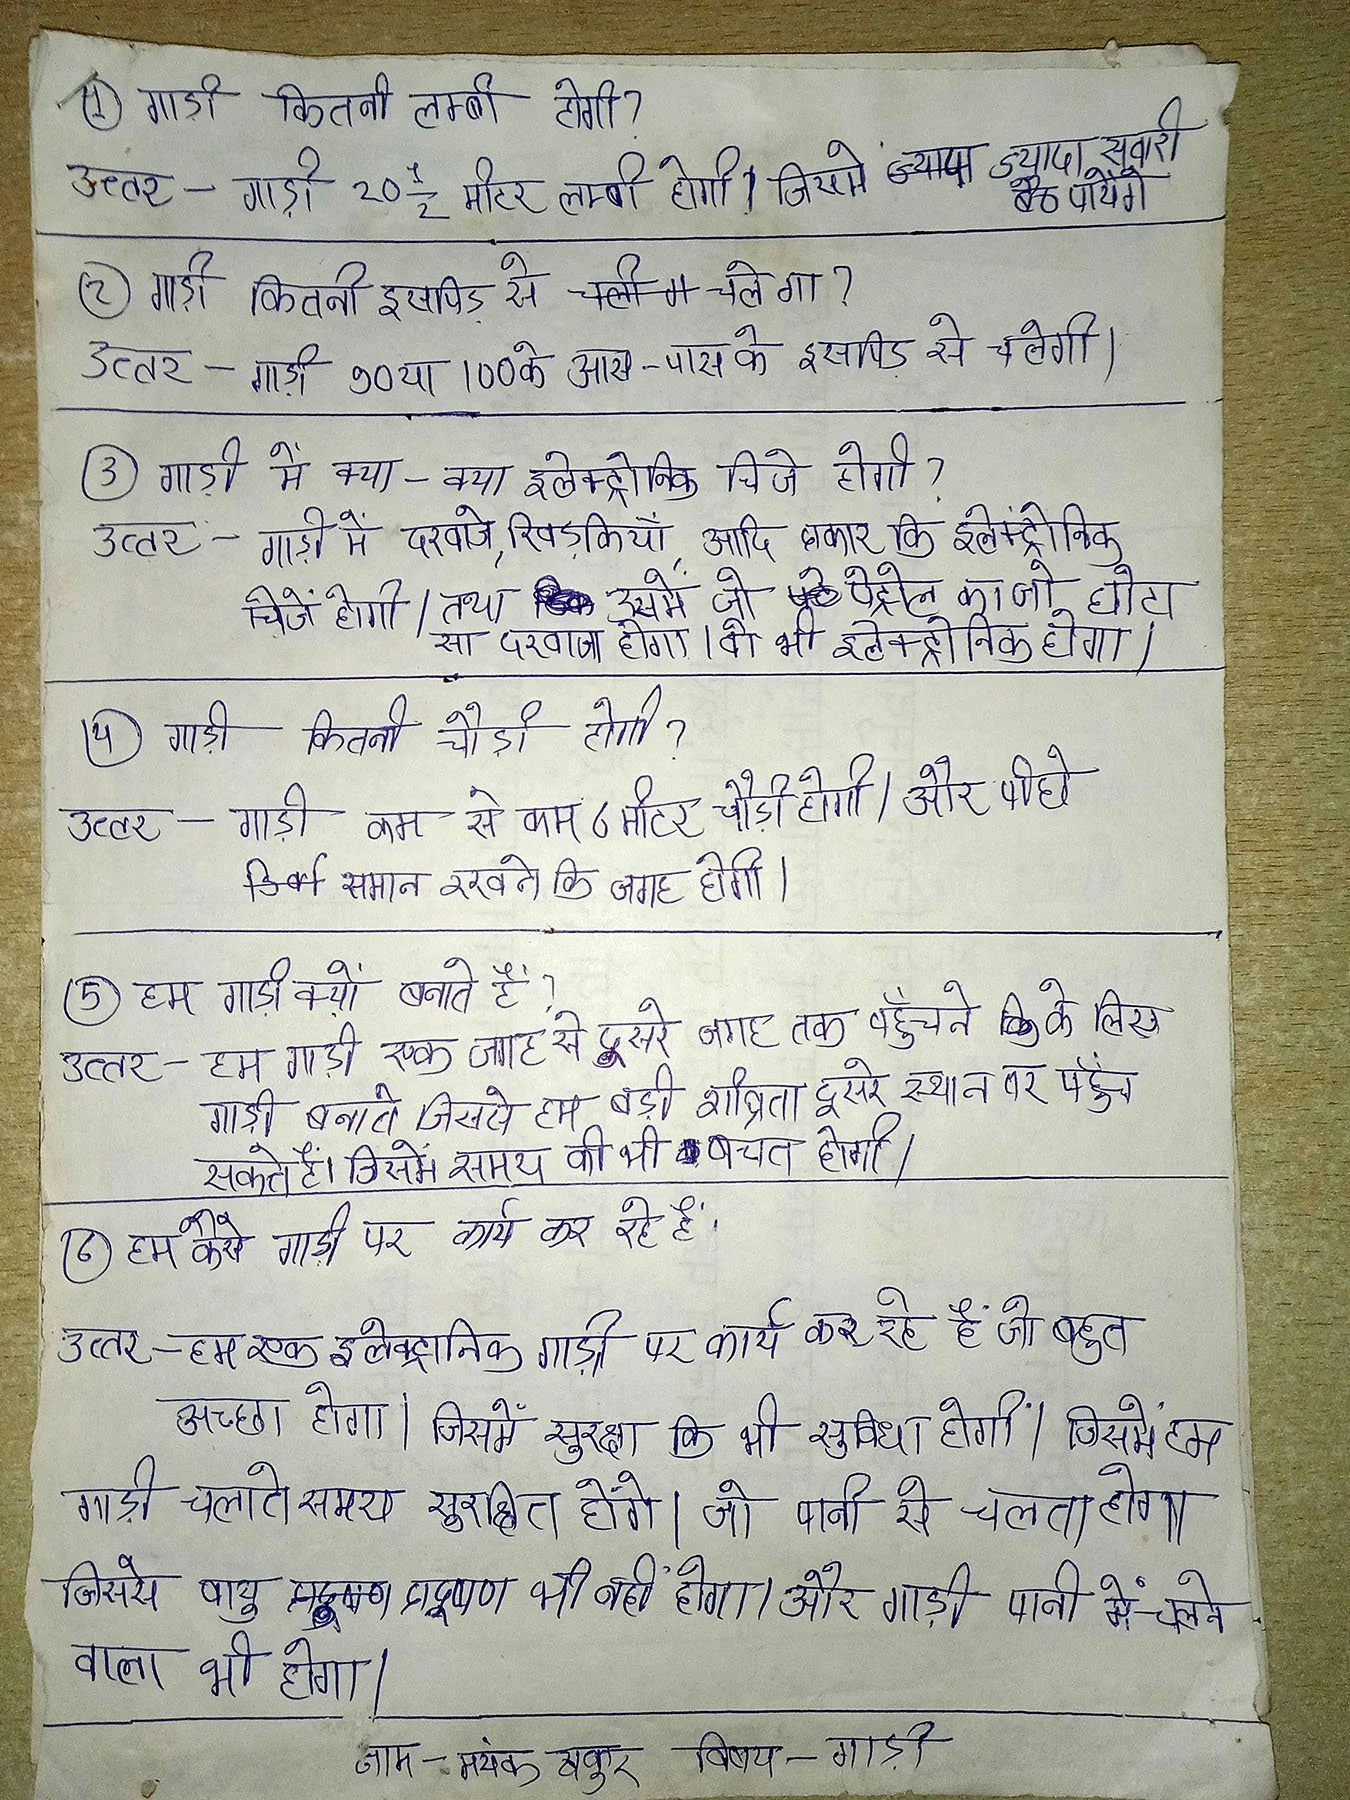 ① गाड़ी कितनी लम्बी होगी?
उत्तर – गाड़ी 20 1/2 मीटर लम्बी होगी। जिसमे ज्यादा ज्यादा सवारी
बैठ पायेंगे
② गाड़ी कितनी इसपिड़ से चलेगा?
उत्तर – गाड़ी 90 या 100 के आस-पास के इसपिड़ से चलेगी।
③ गाड़ी में क्या – क्या इलेक्ट्रोनिक चिजे होगी?
उत्तर – गाड़ी में दरवाजे, खिड़कियाँ, आदि प्रकार कि इलेक्ट्रोनिक
चिजें होगी। तथा उसमें जो पेट्रोल का जो छोटा
सा दरवाजा होगा। वो भी इलेक्ट्रोनिक होगा।
④ गाड़ी कितनी चौड़ी होगी?
उत्तर – गाड़ी कम से कम 6 मीटर चौड़ी होगी। और पीछे
समान रखने कि जगह होगी।
⑤ हम गाड़ी क्यों बनाते हैं?
उत्तर – हम गाड़ी एक जगह से दूसरे जगह तक पहुँचने के लिए
गाड़ी बनाते जिससे हम बड़ी शीघ्रिता दूसरे स्थान पर पहुँच
सकते हैं। जिसमें समय की भी बचत होगी।
⑥ हम कैसे गाड़ी पर कार्य कर रहे हैं।
उत्तर – हम एक इलेक्ट्रानिक गाड़ी पर कार्य कर रहे हैं जो बहुत
अच्छा होगा। जिसमें सुरक्षा कि भी सुविधा होगी। जिसमें हम
गाड़ी चलाते समय सुरक्षित होंगे। जो पानी से चलता होगा
जिससे वायु प्रदूषण भी नहीं होगा। और गाड़ी पानी में चलने
वाला भी होगा।
नाम – मयंक ठाकुर विषय – गाड़ी